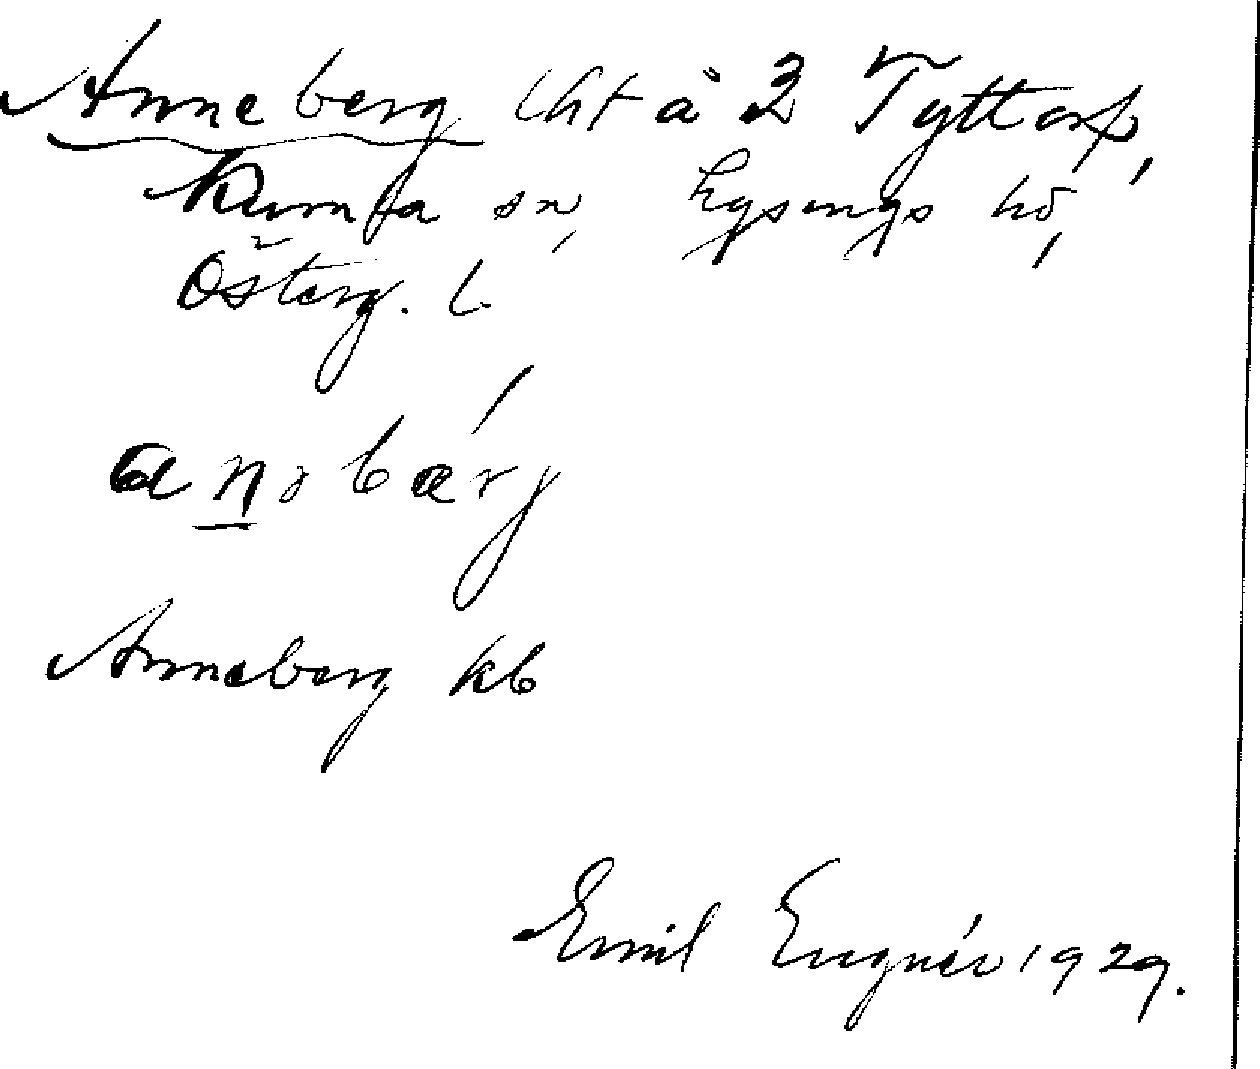 Anneberg lht å 2 Tyttorp,
Kumla sn, Lysings hd,
Österg. l.
anəbærj
Anneberg kb
Emil Engnér 1929.